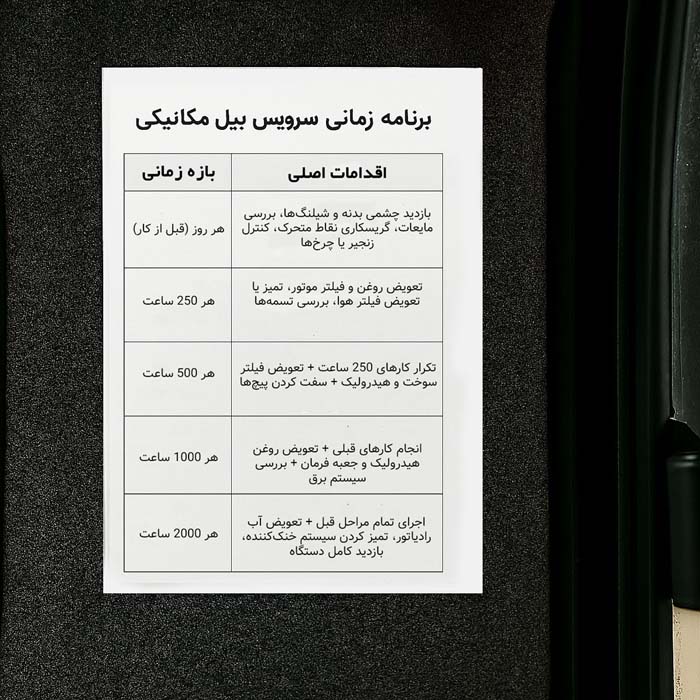 برنامه زمانی سرویس بیل مکانیکی
اقدامات اصلی
بازه زمانی
بازدید چشمی بدنه و شیلنگ‌ها، بررسی
مایعات، گریسکاری نقاط متحرک، کنترل
زنجیر یا چرخ‌ها
هر روز (قبل از کار)
تعویض روغن و فیلتر موتور، تمیز یا
تعویض فیلتر هوا، بررسی تسمه‌ها
هر 250 ساعت
تکرار کارهای 250 ساعت + تعویض فیلتر
سوخت و هیدرولیک + سفت کردن پیچ‌ها
هر 500 ساعت
انجام کارهای قبلی + تعویض روغن
هیدرولیک و جعبه فرمان + بررسی
سیستم برق
هر 1000 ساعت
اجرای تمام مراحل قبل + تعویض آب
رادیاتور، تمیز کردن سیستم خنک‌کننده،
بازدید کامل دستگاه
هر 2000 ساعت